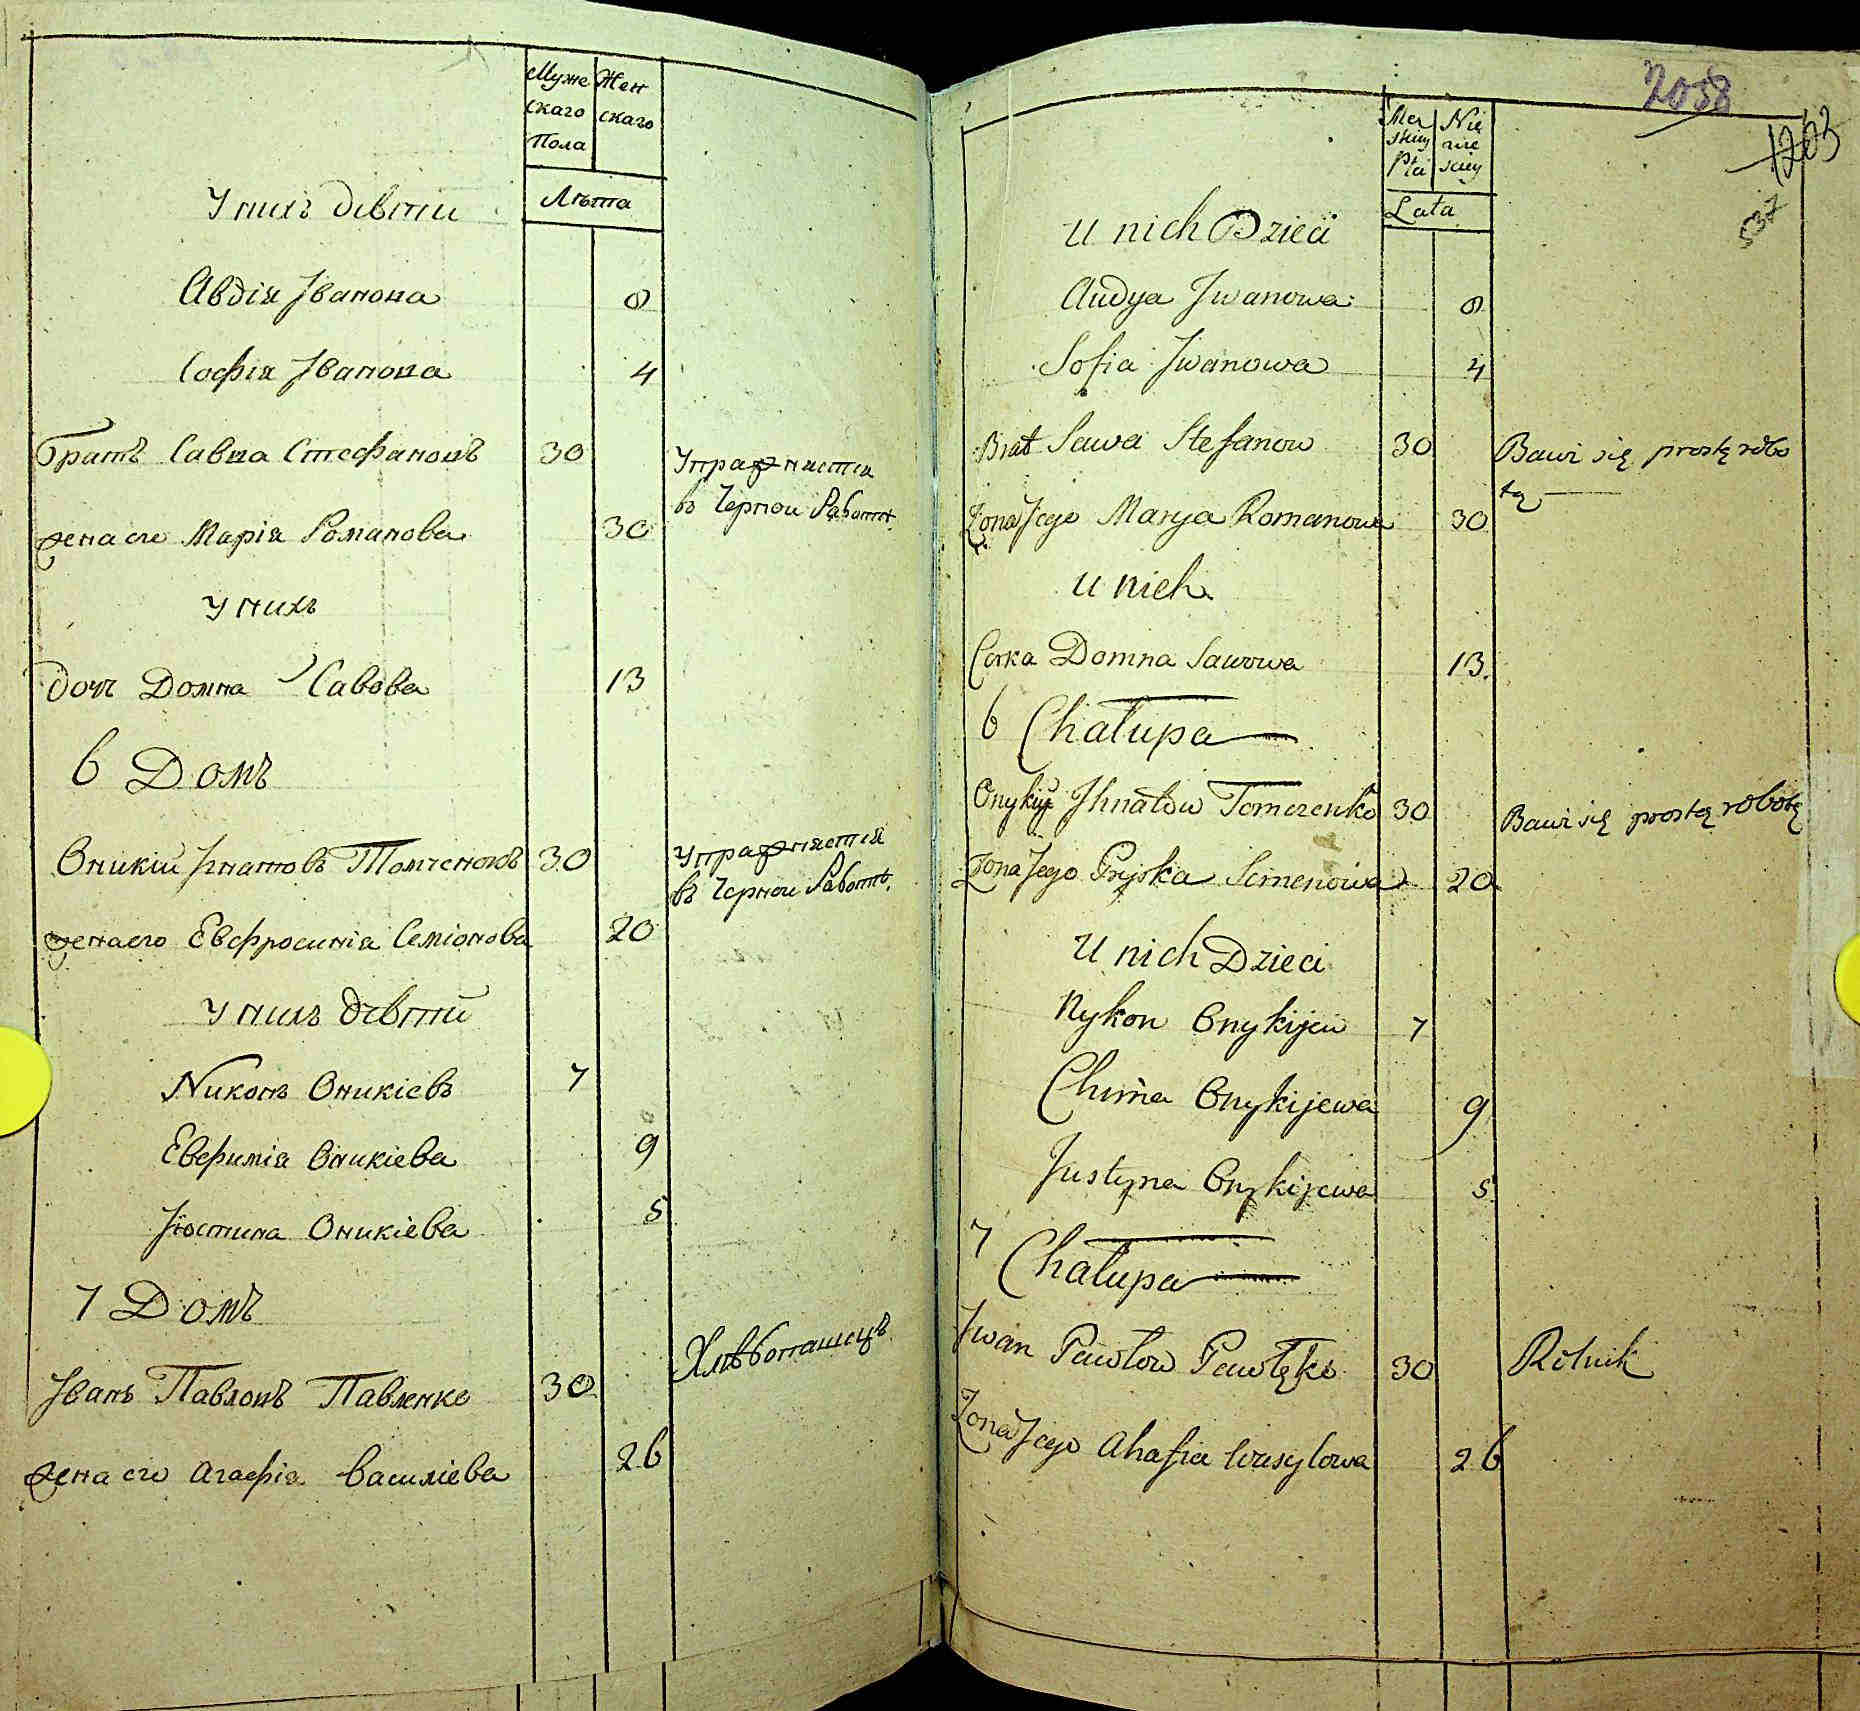 Муже Жен
скаго скаго
Пола
Лѣта
У нихъ дѣти
Авдія Іванова 8
Софія Іванова 4
Братъ Савва Стефановъ 30 Упражняется
въ Черной Работѣ
жена его Марія Романова 30
У нихъ
дочь Домна Савова 13
6 Домъ
Оникій Ігнатовъ Томченокъ 30 Упражняется
въ Черной Работѣ.
жена его Евфросинія Семіонова 20
У нихъ дѣти
Никонъ Оникіевъ 7
Евфимія Оникіева 9
Іюстина Оникіева 5
7 Домъ
Іванъ Павловъ Павленко 30 Хлѣбопашецъ
жена его Агафія Василіева 26
2058
1203
537
Męz Nie
skiey wie
Płci sciey
Lata
U nich Dzieci
Audya Jwanowa 8
Sofia Jwanowa 4
Brat Sawa Stefanow 30 Bawi się prostę robo
tą
Żona Jego Marya Romanowa 30
U nich
Corka Domna Sawowa 13.
6 Chałupa
Onykiy Jhnatow Tomczenko 30 Bawi się prostą robotę
Żona Jego Pryska Semenowa 20
U nich Dzieci
Nykon Onykijew 7
Chima Onykijewa 9
Justyna Onykijewa 5
7 Chałupa
Jwan Pawłow Pawłęko 30 Rolnik
Żona Jego Ahafia Wasylowa 26